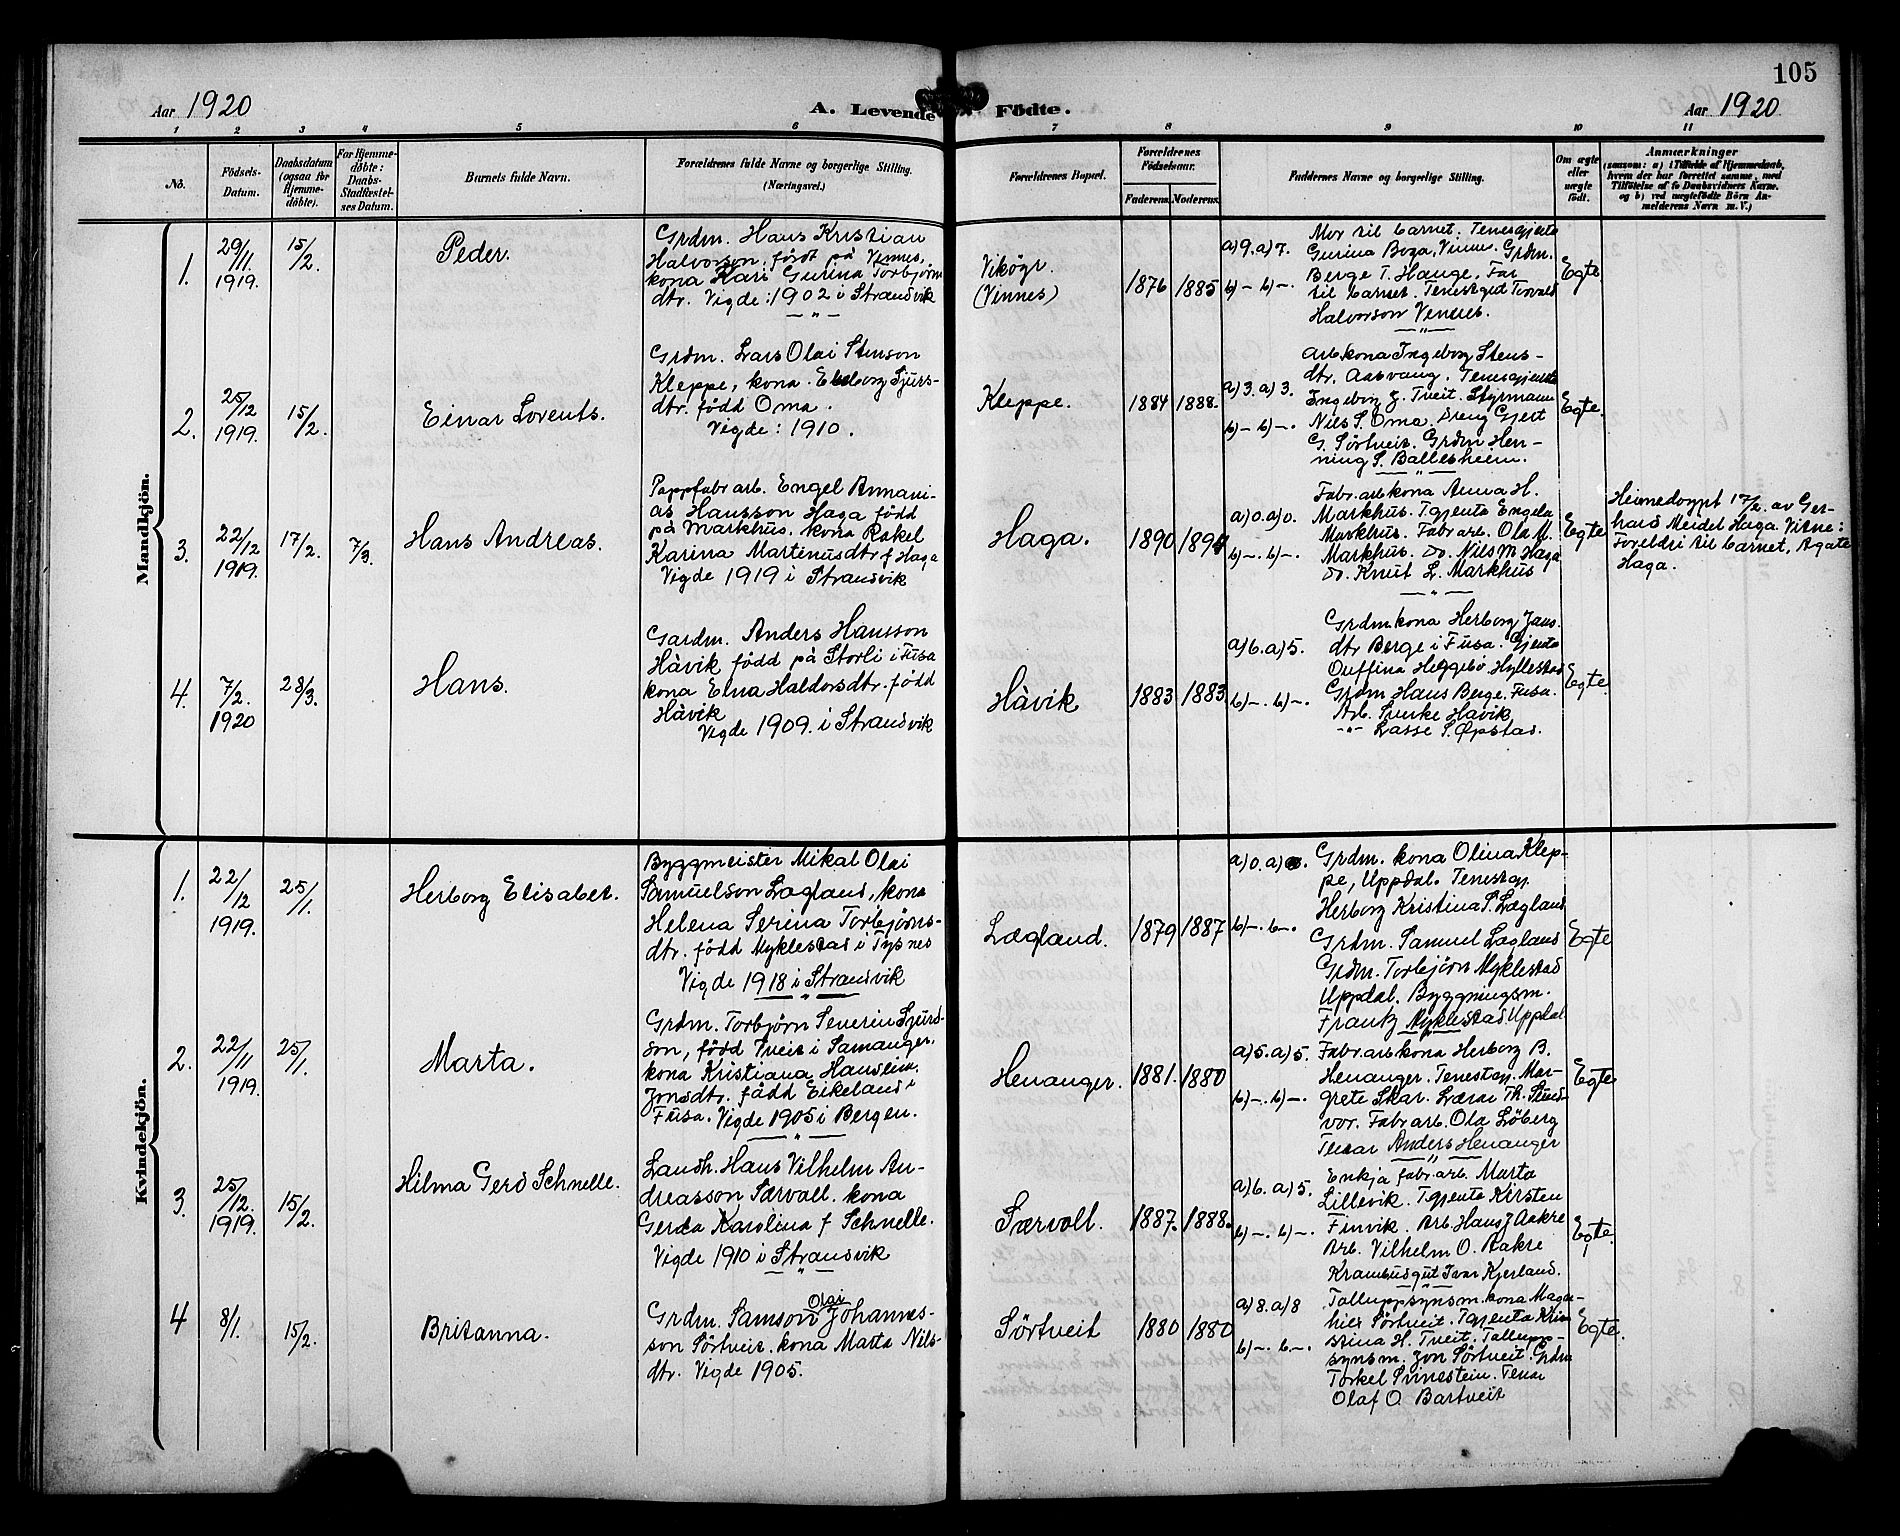 105
Aar 1920
A. Levende Födte.
Aar 1920
1 2 3 4 5 6 7 8 9 10 11
No.
Födsels-
Datum.
Daabsdatum
(ogsaa for
Hjemme-
döbte).
For Hjemme-
döbte:
Daabs-
Stadfæstel-
ses Datum.
Barnets fulde Navn.
Forældrenes fulde Navne og borgerlige Stilling.
(Næringsvei.)
Forældrenes Bopæl.
Forældrenes
Födselsaar.
Faderens. Moderens.
Faddernes Navne og borgerlige Stilling.
Om ægte
eller
uægte
födt.
Anmærkninger
(saasom: a) i Tilfælde af Hjemmedaab,
hvem der har forrettet samme, med
Tilföielse af to Daabsvidners Navne.
og b) ved uægtefödte Börn An-
melderens Navn m. V.)
Mandkjön.
1.
29/11
1919.
15/2.
Peder.
Grdm. Hans Kristian
Halvorson. född på Vinnes,
kona Kari Gurina Torbjørns
dtr. Vigde: 1902 i Strandvik
Vikögr.
(Vinnes)
1876 1885
a) 9. a) 7.
b) – b) –
Mor til barnet. Tenesgjenta
Gurina Boga, Vinnes. Grdm.
Berge T. Hauge. Far
til barnet. Tenestgut Torvald
Halvorson Vinnes.
Egte
2.
25/12
1919.
15/2.
Einar Lovents.
Grdm. Lars Olai Stenson
Kleppe, kona. Elleborg Sjurs-
dtr. född Oma.
Vigde: 1910.
Kleppe.
1884 1888.
a) 3. a) 3.
b) – b) –
Arb kona Ingeborg Stens-
dtr. Aasvang. Tenesgjenta
Ingeborg J. Tveit. Styrmann
Nils S. Oma. Dreng Gjert
G. Sörtveit. Grdm Hen-
ning S. Ballesheim.
Egte.
3.
22/12
1919.
17/2.
7/3.
Hans Andreas.
Pappfabr arb. Engel Annani-
as Hansson Haga född
på Markhus. kona Rakel
Karina Martinusdtr. f Haga
Vigde 1919 i Strandvik
Haga.
1890 1894
a) 0. a) 0.
b) –. b) –.
Fabr. arb kona Anna H.
Markhus. Tgjenta Engela
Markhus. Fabr arb. Ola M.
Markhus. Do. Nils M Haga
do. Knut L. Markhus
Egte
Heimedöypt 17/2. av Ger-
hard Meidel Haga. Vitne:
Foreldri til barnet, Agate
Haga.
4.
7/2.
1920
28/3.
Hans.
Gardm. Anders Hansson
Håvik född på Storli i Fusa
kona Elna Haldorsdtr. född
Håvik
Vigde 1909. i Strandvik
Håvik
1883 1883
a) 6. a) 5.
b) –. b) –.
Grdm. kona Herborg Jans.
dtr Berge i Fusa. Gjenta
Oreffina Heggebö Hyllestad
Grdm Hans Berge. Fusa.
Arb. Sverke Håvik
-"- Lasse S. Øpstad.
Egte.
Kvindekjön.
1.
22/12
1919.
25/1.
Herborg Elisabet.
Byggmeister Mikal Olai
Samuelson Lægland, kona
Helena Serina Torbjørns-
dtr. född Myklestad i Tysnes
Vigde 1918 i Strandvik
Lægland.
1879 1887
a) 0. a) 0.
b) –. b –.
Grdm. kona Olina Klep-
pe, Uppdal. Tenestgj.
Herborg Kristina S. Lægland
Grdm. Samuel Lægland
Grdm. Torbjörn Myklestad
Uppdal. Byggningsm.
Frantz Myklestad Uppdal
Egte
2.
22/11
1919.
25/1.
Marta.
Grdm. Torbjörn Severin Sjurd-
son, född Tveit i Samanger.
kona Kristiana Hansine
Jonsdtr. född Eikeland i
Fusa. Vigde 1905 i Bergen.
Henanger.
1881. 1880
a) 5. a) 5.
b) –. b) –.
Fabr. arb kona Herborg B.
Henanger. Tenestgj. Mar-
grete Skar. Lærar Th. Sund-
vor. Fabr arb. Ola Löberg
Tenar Anders Henanger
Egte
3.
25/12.
1919.
15/2.
Hilma Gerd Schnelle.
Landh. Hans Vilhelm An-
dreasson Særvoll. kona
Gerda Karolina f Schnelle.
Vigde 1910 i Strandvik
Særvoll.
1887. 1888.
a) 6. a) 5.
b) –. b) –.
Enkja fabr arb. Marta
Lillevik. Tgjenta Kirsten
Finvik. Arb. Hans J Aakre
Arb. Vilhelm O. Aakre
Krambudgut Ivar Kjerland.
Egte.
4
8/1.
15/2.
Britanna.
Grdm. Samson Olai Johannes-
son Sörtveit. kona Marta Nils-
dtr. Vigde 1905.
Sörtveit
1880 1880
a) 8. a) 8
b) –. b –.
Tolluppsynsm. kona Maga-
hier Sörtveit. Tgjenta Kris
stina H. Tveit. Tollupp-
synsm. Jon Sörtveit. Grdm
Torkel Svinestein. Tenar
Olaf O. Bartveit
Egte.